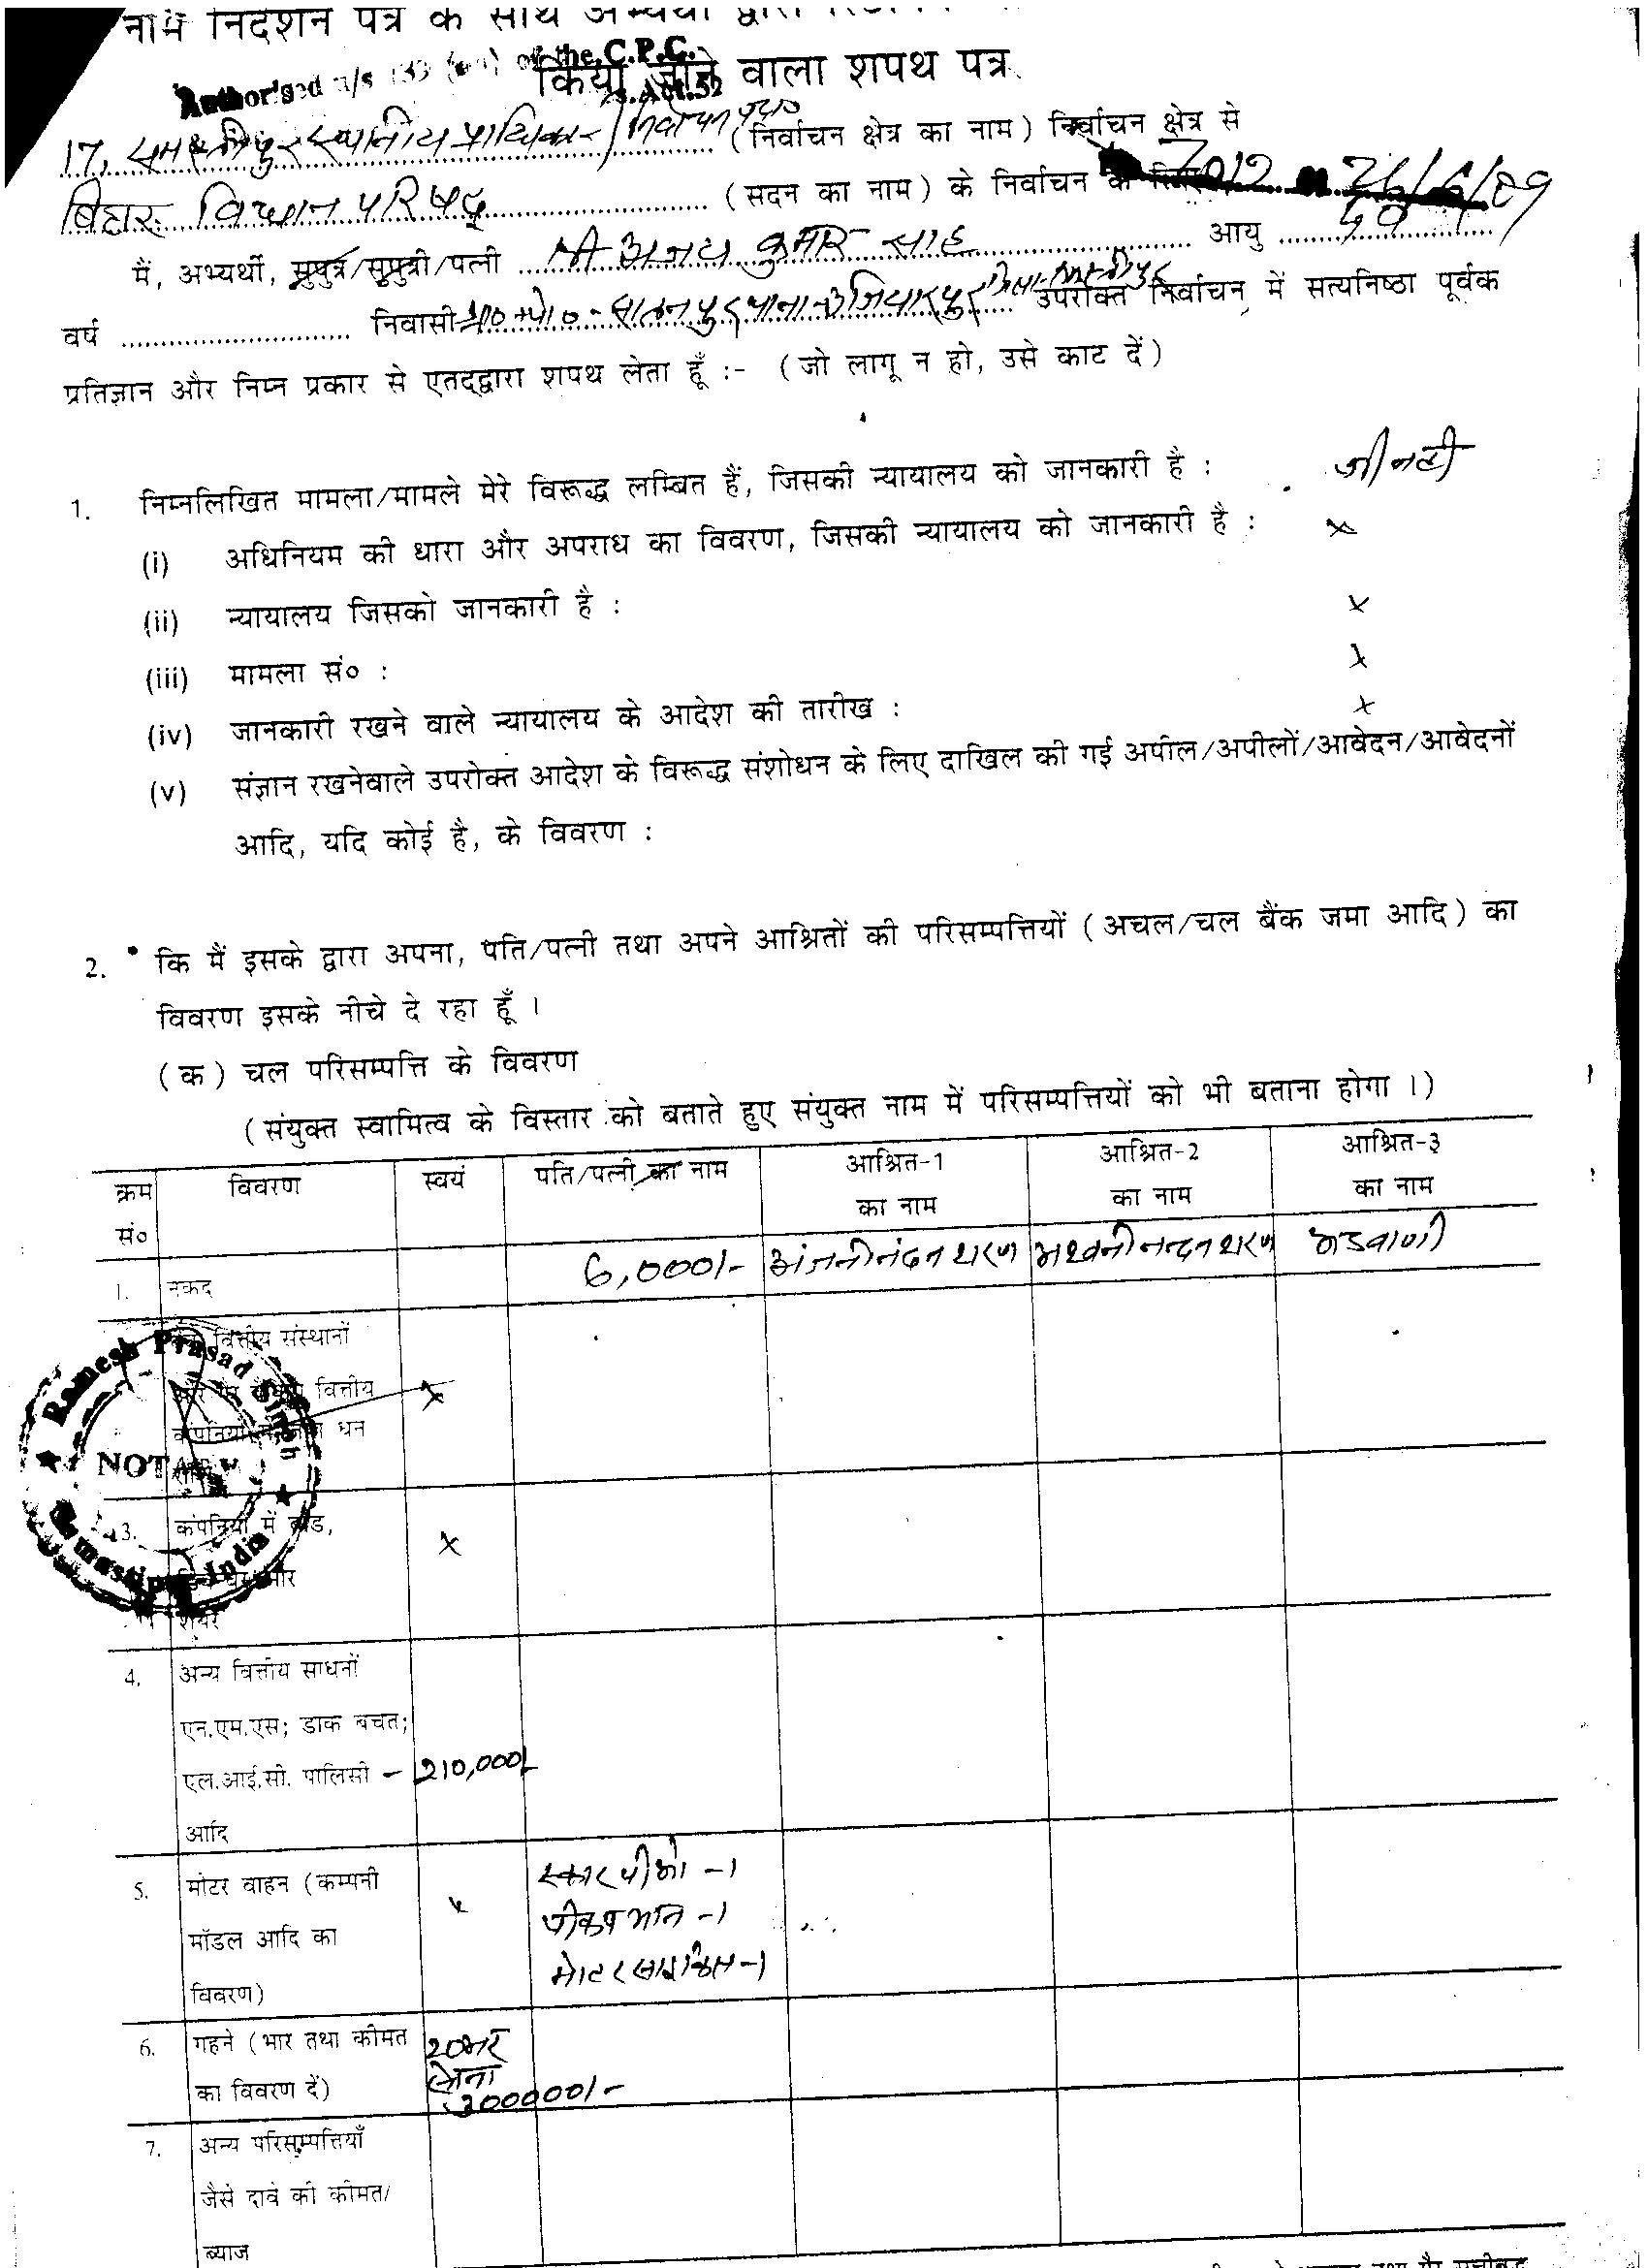 नाम निर्देशन पत्र के साथ अभ्यर्थी द्वारा
Authorised u/s 139 of the C.P.C.
किया जाने वाला शपथ पत्र
17, समस्तीपुर स्थानीय प्राधिकार (निर्वाचन क्षेत्र का नाम) निर्वाचन क्षेत्र से
बिहार विधान परिषद् (सदन का नाम) के निर्वाचन के 26/6/09
मैं, अभ्यर्थी, सुपुत्र/सुपुत्री/पत्नी श्री अजय कुमार साह आयु
वर्ष निवासी ग्रा०+पो०- सातनपुर थाना-उजियारपुर जिला-समस्तीपुर उपरोक्त निर्वाचन में सत्यनिष्ठा पूर्वक
प्रतिज्ञान और निम्न प्रकार से एतद्द्वारा शपथ लेता हूँ :- (जो लागू न हो, उसे काट दें)
1. निम्नलिखित मामला/मामले मेरे विरूद्ध लम्बित हैं, जिसकी न्यायालय को जानकारी है : जी नही
(i) अधिनियम की धारा और अपराध का विवरण, जिसकी न्यायालय को जानकारी है : x
(ii) न्यायालय जिसको जानकारी है : x
(iii) मामला सं० : x
(iv) जानकारी रखने वाले न्यायालय के आदेश की तारीख : x
(v) संज्ञान रखनेवाले उपरोक्त आदेश के विरूद्ध संशोधन के लिए दाखिल की गई अपील/अपीलों/आवेदन/आवेदनों
आदि, यदि कोई है, के विवरण :
2. कि मैं इसके द्वारा अपना, पति/पत्नी तथा अपने आश्रितों की परिसम्पत्तियों (अचल/चल बैंक जमा आदि) का
विवरण इसके नीचे दे रहा हूँ ।
(क) चल परिसम्पत्ति के विवरण
(संयुक्त स्वामित्व के विस्तार को बताते हुए संयुक्त नाम में परिसम्पत्तियों को भी बताना होगा ।)
क्रम सं० विवरण स्वयं पति/पत्नी का नाम आश्रित-1 का नाम आश्रित-2 का नाम आश्रित-३ का नाम
1. नकद 6,000/- अंजनी नंदन शरण अश्वनी नन्दन शरण
वित्तीय संस्थानों
वित्तीय x
धन
Ramesh Prasad Singh
NOTARY
Samastipur India
3. कंपनियों में बांड, x
शेयर
4. अन्य वित्तीय साधनों
एन.एम.एस; डाक बचत;
एल.आई.सी. पालिसी - 210,000/-
आदि
5. मोटर वाहन (कम्पनी x स्कारपीओ -1
मॉडल आदि का पीकप भान -1
विवरण) मोटर साईकिल -1
6. गहने (भार तथा कीमत २० भर
का विवरण दें) सोना
300000/-
7. अन्य परिसम्पत्तियाँ
जैसे दावे की कीमत/
ब्याज